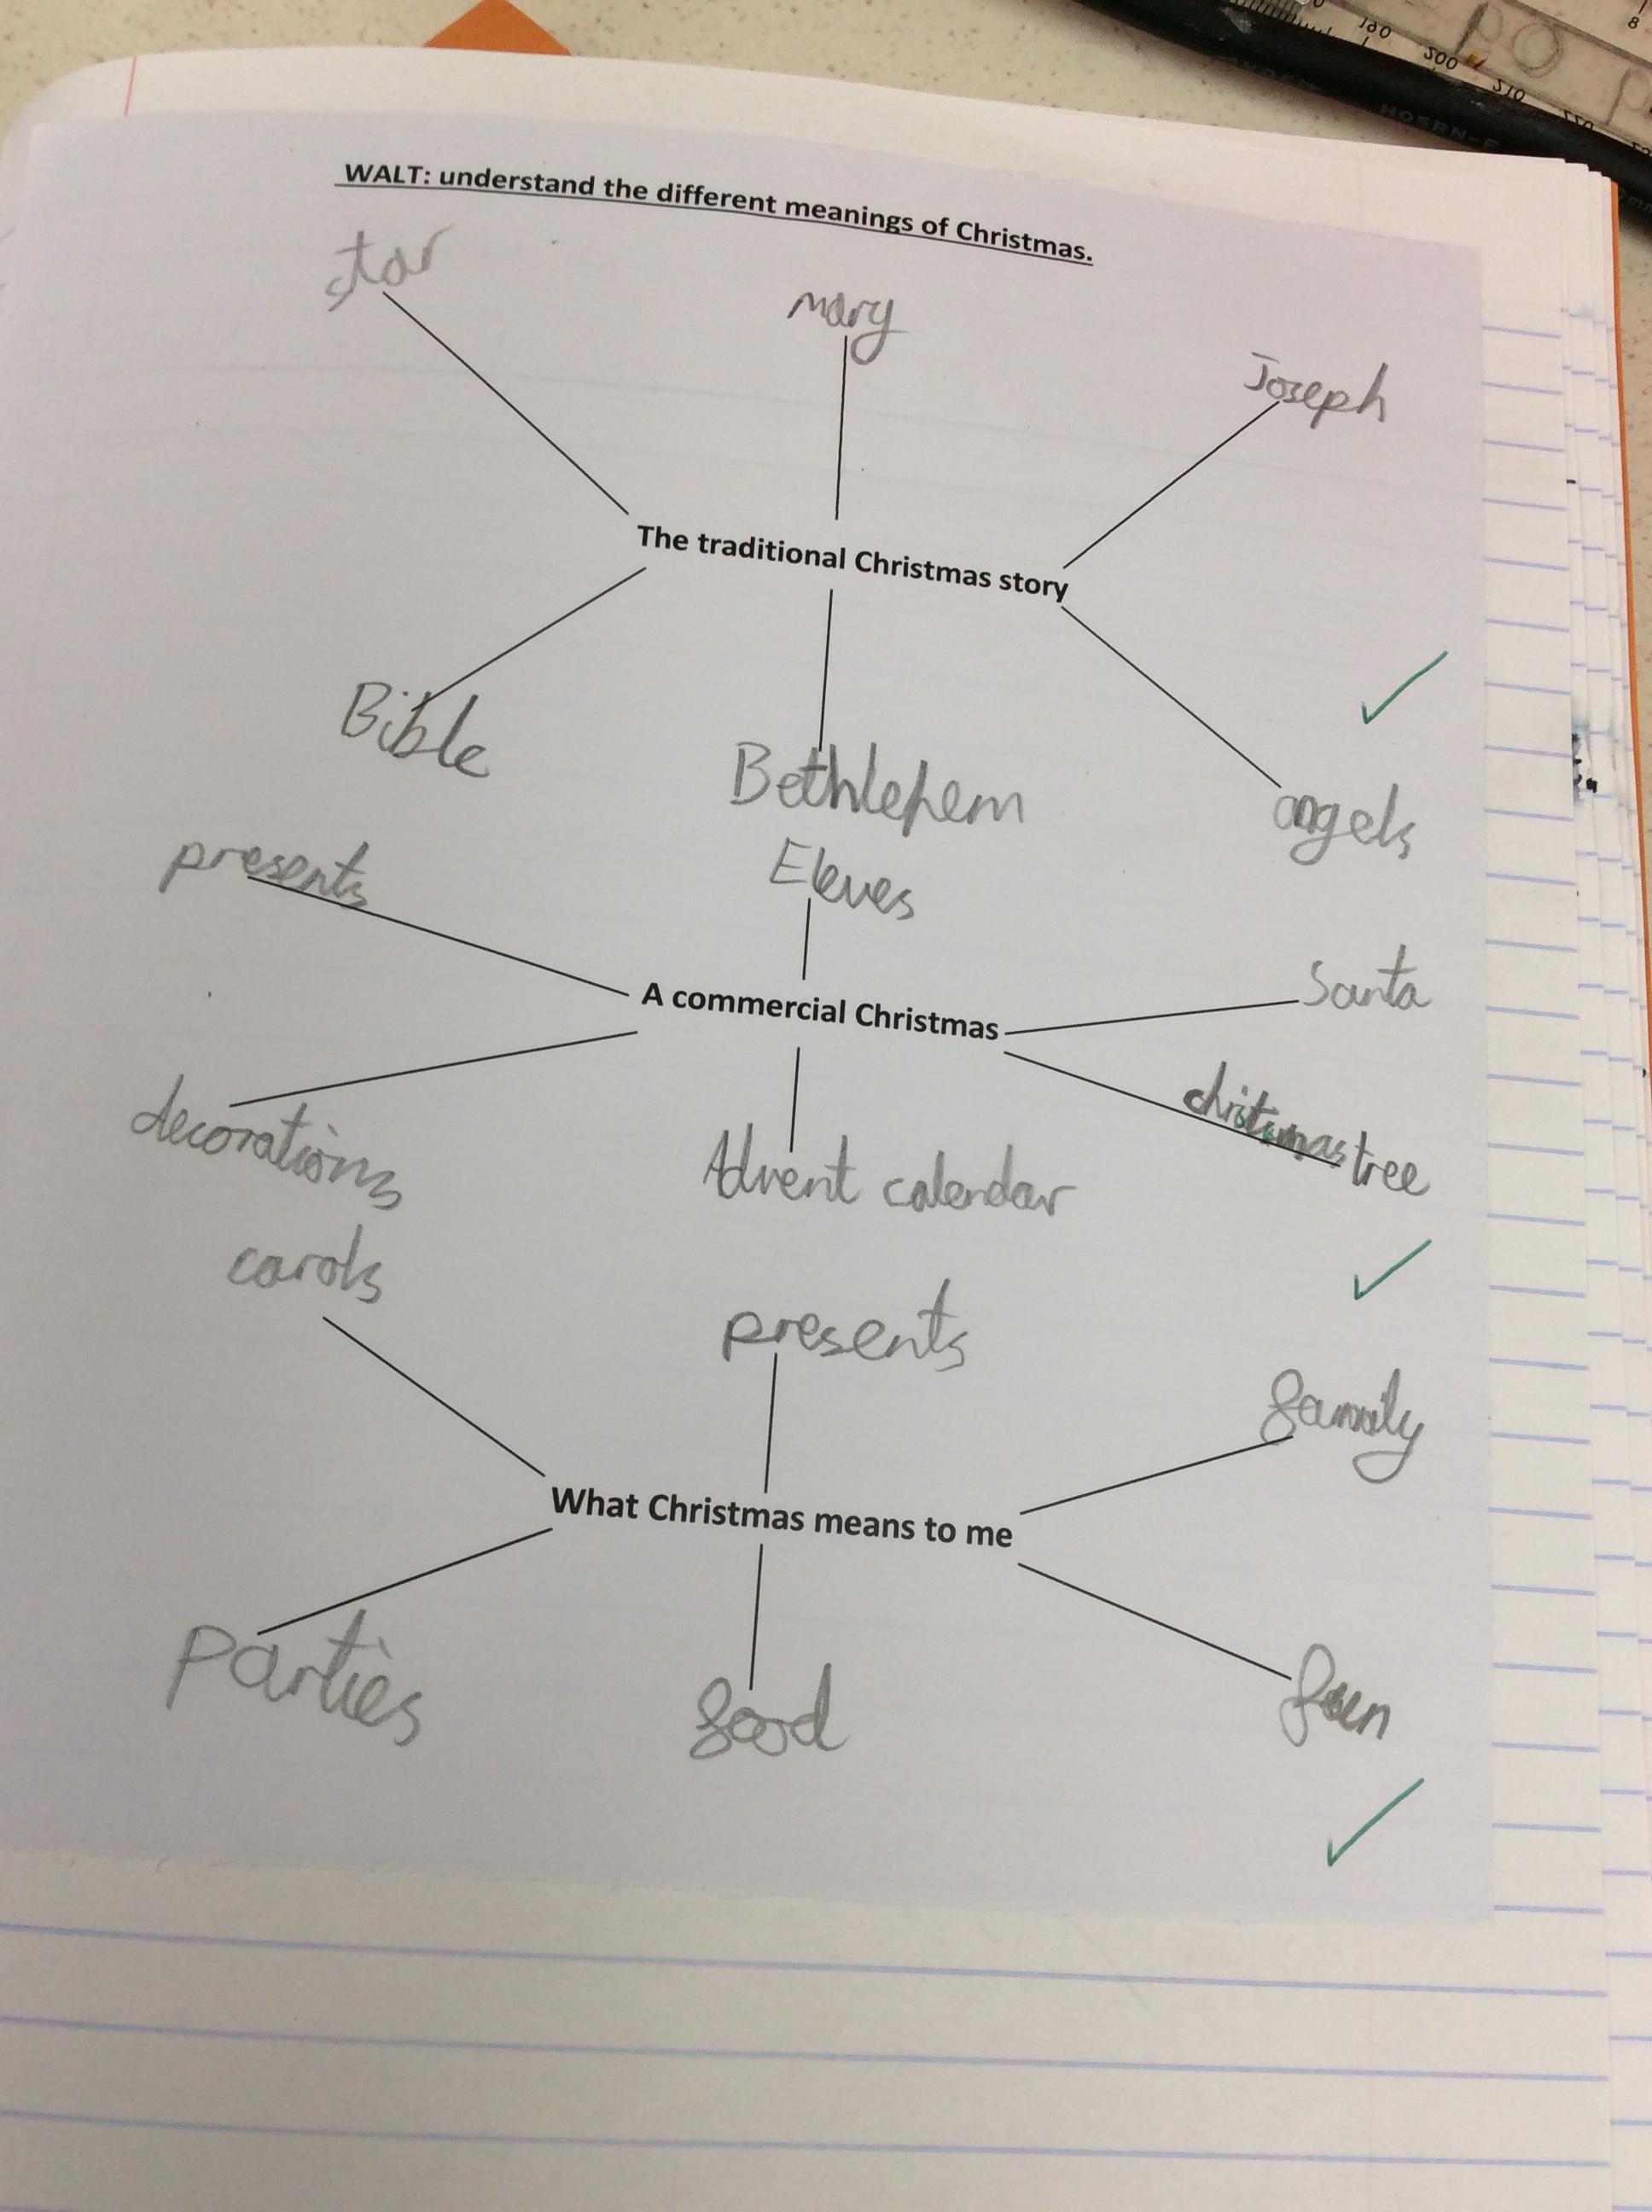 WALT: understand the different meanings of Christmas.
star
mary
Joseph
The traditional Christmas story
Bible
Bethlehem
angels
presents
Eleves
Santa
A commercial Christmas
christmas tree
decorations
Advent calendar
carols
presents
family
What Christmas means to me
parties
food
fun
180
200
210
8